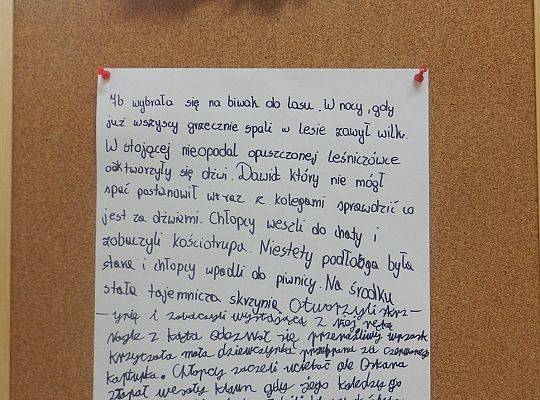 4b wybrała się na biwak do lasu. W nocy, gdy
już wszyscy grzecznie spali w lesie zawył wilk.
W stojącej nieopodal opuszczonej leśniczówce
odktworzyły się dźwi. Dawid który nie mógł
spać postanowił wraz z kolegami sprawdzić co
jest za dźwiami. Chłopcy weszli do chaty i
zobaczyli kościotrupa. Niestety podłoga była
stara i chłopcy wpadli do piwnicy. Na środku
stała tajemnicza skrzynia Otworzyli skrz-
-ynię i zobaczyli wystającą z niej rękę
Nagle z kąta odezwał się przeraźliwy wrzask
Krzyczała mała dziewczynka przebrana za czerwonego
kapturka. Chłopcy zaczeli uciekać ale Oskara
złapał wesoły klown gdy jego koledzy go